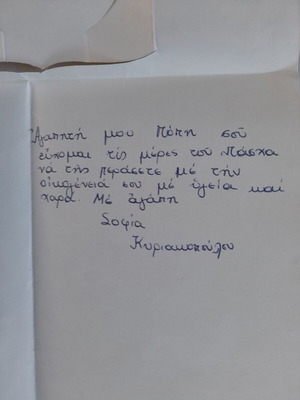 Ἀγαπητή μου Πόπη σοῦ
εὔχομαι τίς μέρες τοῦ Πάσχα
νά τῆς περάσετε μέ τήν
οἰκογένειά σου μέ ὑγεία καί
χαρά. Μέ ἀγάπη
Σοφία
Κυριακοπούλου